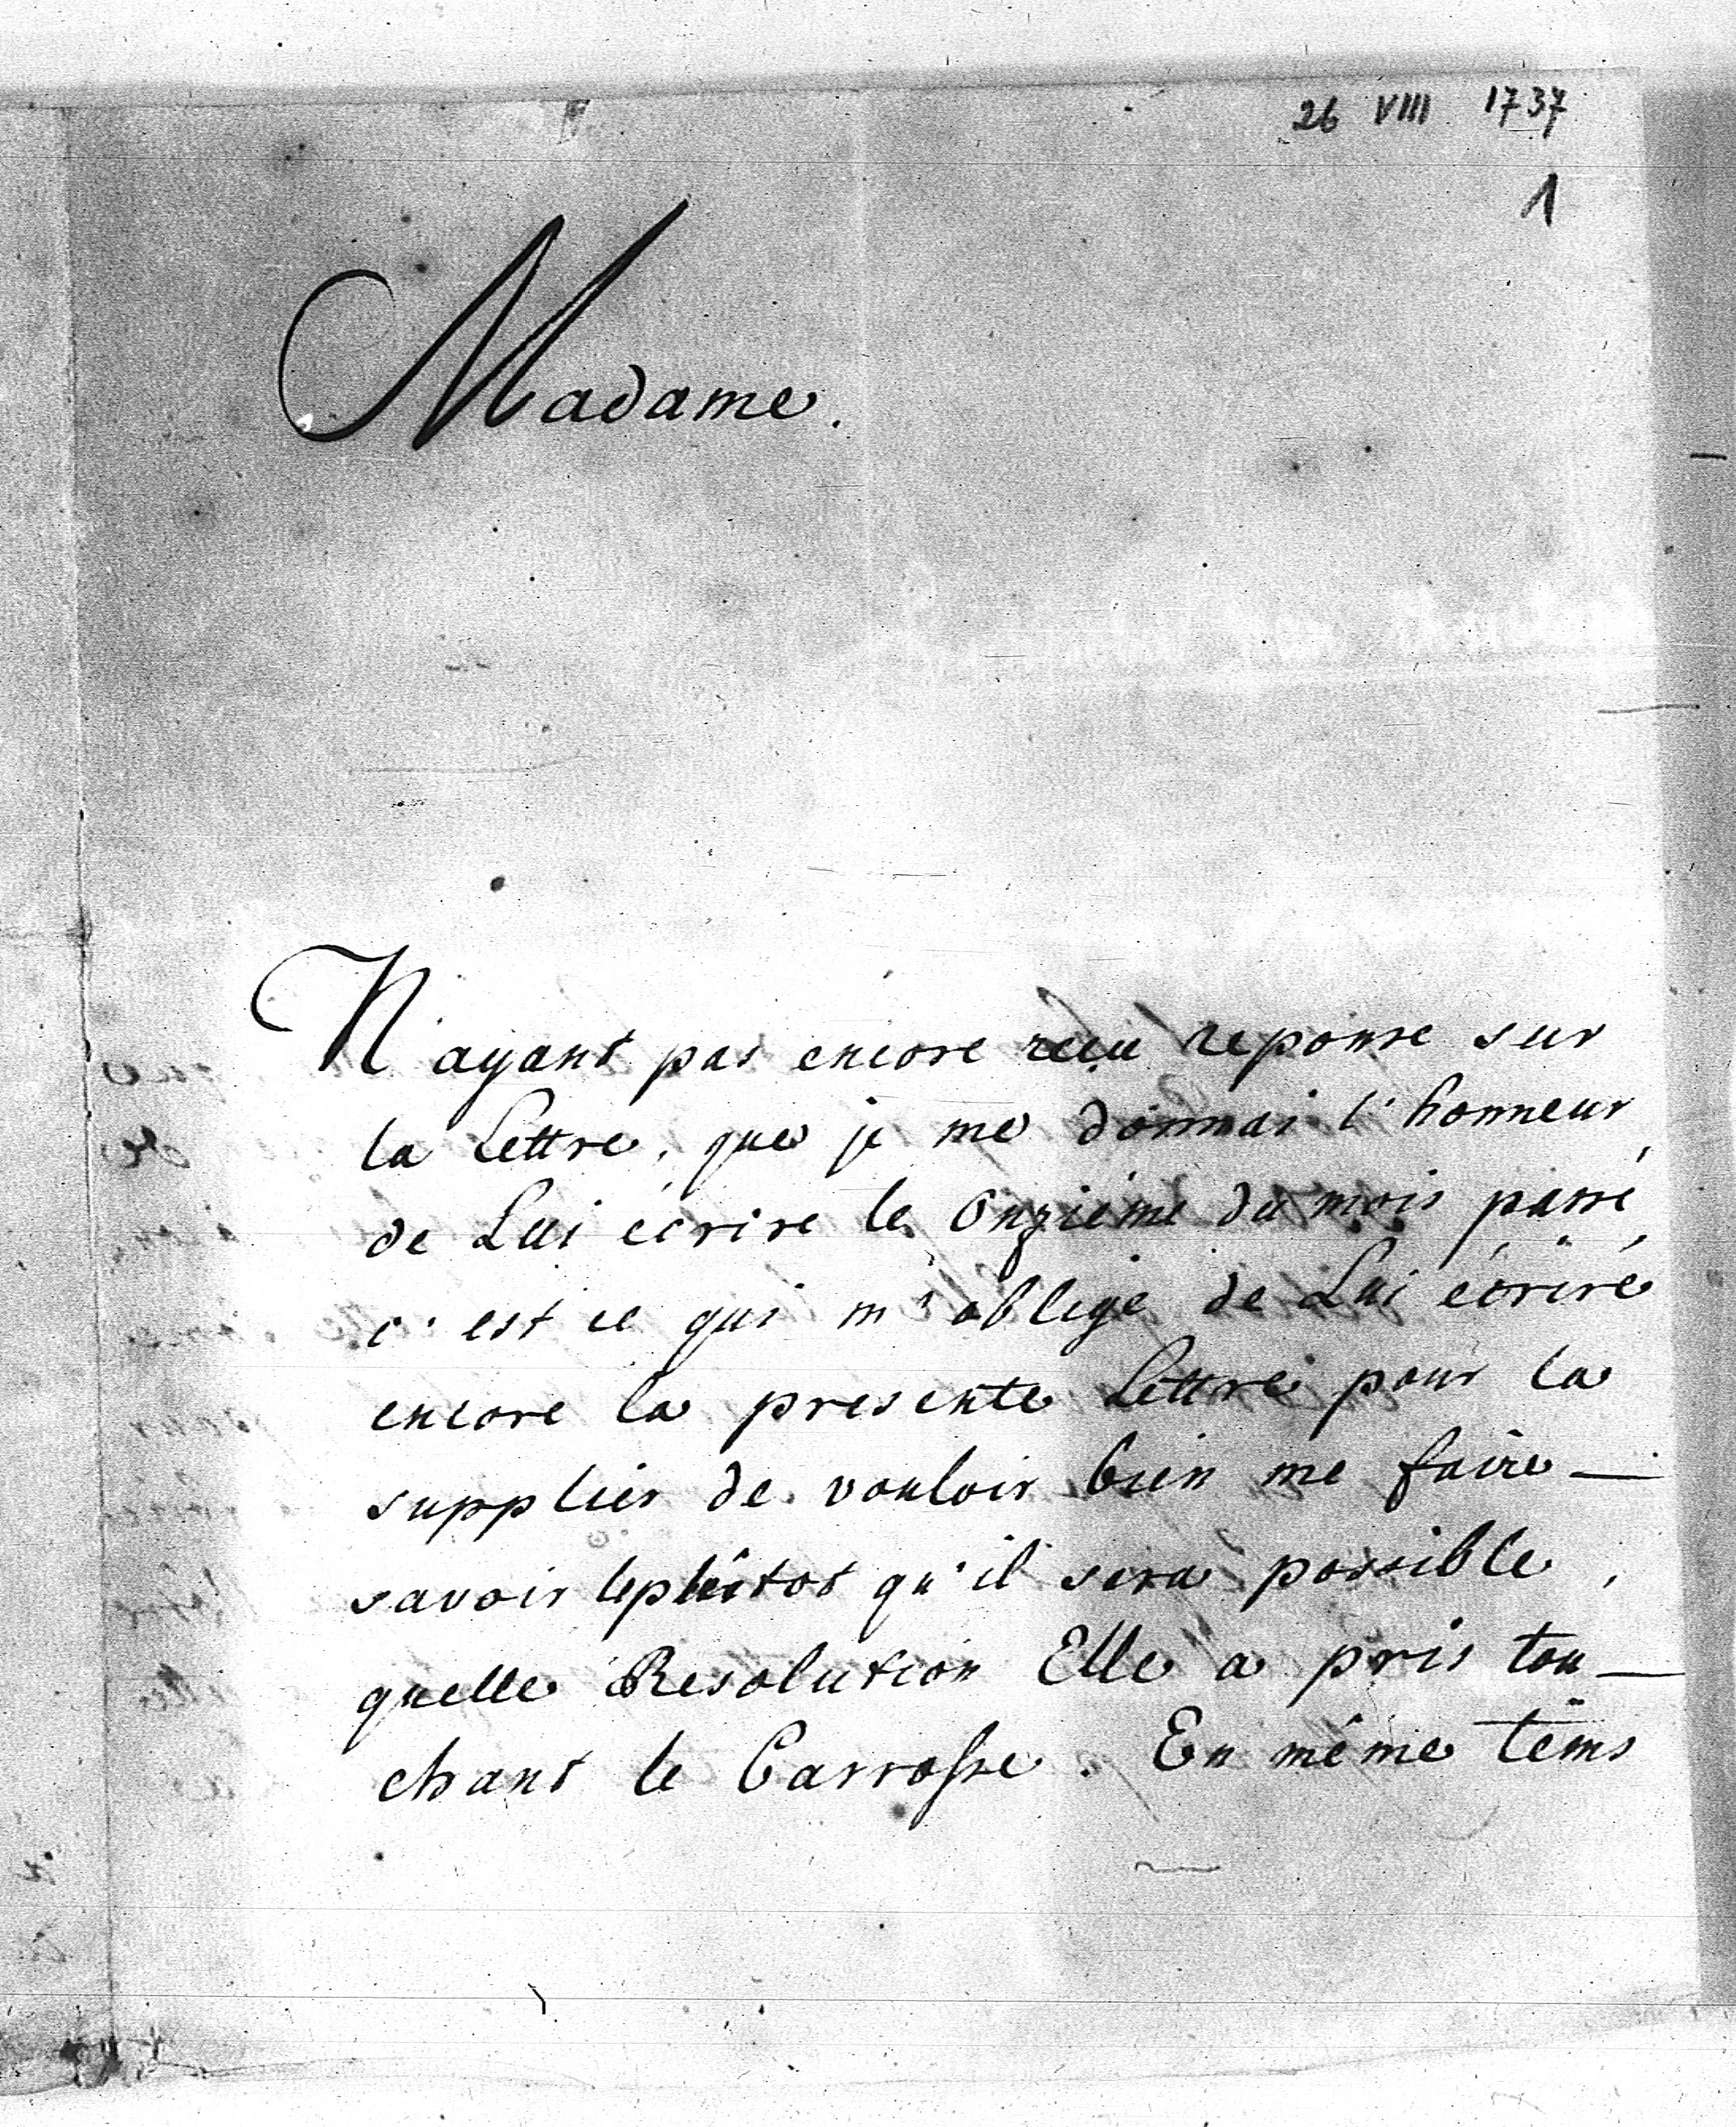 26 VIII 1737
1
Madame.
N'ayant pas encore reçu reponse sur
la Lettre, que je me donnai l'honneur
de Lui écrire le Onziéme du mois passé,
c'est ce qui m'oblige de Lui écrire
encore la presente Lettre pour la
supplier de vouloir bien me faire —
savoir leplûtot qu'il sera possible,
quelle Resolution Elle a pris tou—
chant le Carrosse. En même têms